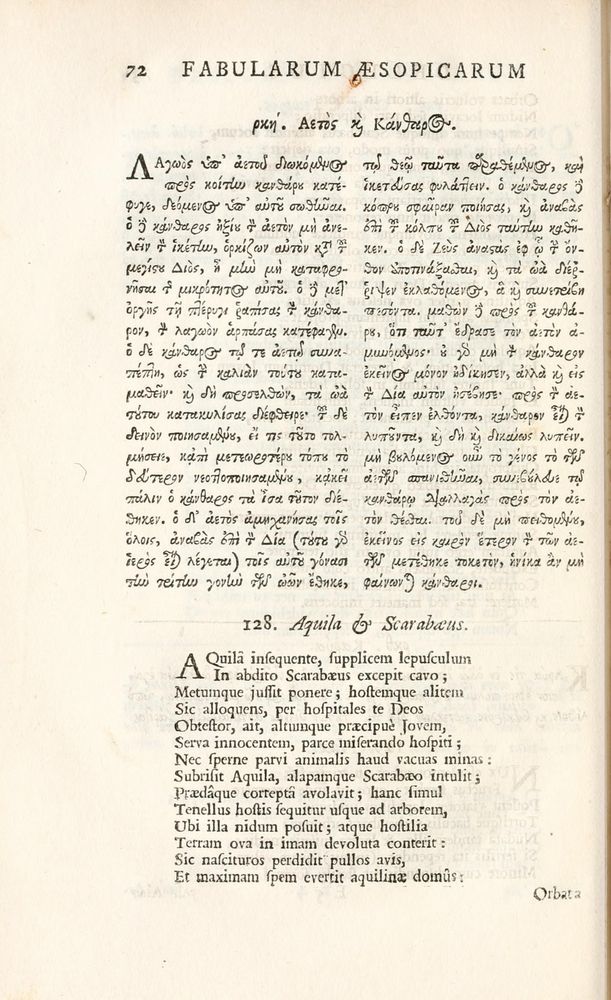 72 FABULARUM ÆSOPICARUM
ρκή. Αετὸς κὶ Κάνθαρος.
ΛΑγωὸς ὑπ' ἀετοῦ διωκόμενος
πρὸς κοίτην κανθάρου κατέ-
φυγε, δεόμενος ὑπ' αὐτοῦ σωθῆναι.
ὁ δὲ κάνθαρος ἠξίου τὸν ἀετὸν μὴ ἀνε-
λεῖν τὸν ἱκέτην, ὁρκίζων αὐτὸν κατὰ τοῦ
μεγίστου Διὸς, ἦ μὴν μὴ καταφρο-
νῆσαι τῆς μικρότητος αὐτοῦ. ὁ δὲ μετ'
ὀργῆς τῇ πτέρυγι ῥαπίσας τὸν κάνθα-
ρον, τὸν λαγωὸν ἁρπάσας κατέφαγεν.
ὁ δὲ κάνθαρος τῷ τε ἀετῷ συνα-
πέπτη, ὡς τὴν καλιὰν τούτου κατα-
μαθεῖν· κὶ δὴ προσελθὼν, τὰ ὠὰ
τούτου κατακυλίσας διέφθειρε· τοῦ δὲ
δεινὸν ποιησαμένου, εἴ τις τοῦτο τολ-
μήσειε, κἀπὶ μετεωροτέρου τόπου τὸ
δεύτερον νεοττοποιησαμένου, κἀκεῖ
πάλιν ὁ κάνθαρος τὰ ἴσα τοῦτον διέ-
θηκεν. ὁ δ' ἀετὸς ἀμηχανήσας τοῖς
ὅλοις, ἀναβὰς ἐπὶ τὸν Δία (τούτου γὰρ
ἱερὸς εἶναι λέγεται) τοῖς αὐτοῦ γόνασι
τὴν τρίτην γονὴν τῶν ὠῶν ἔθηκε,
τῷ θεῷ ταῦτα παραθέμενος, καὶ
ἱκετεύσας φυλάττειν. ὁ κάνθαρος δὲ
κόπρου σφαῖραν ποιήσας, κὶ ἀναβὰς
ἐπὶ τοῦ κόλπου τοῦ Διὸς ταύτην καθῆ-
κεν. ὁ δὲ Ζεὺς ἀναστὰς ἐφ' ᾧ τὴν ὄν-
θον ἀποτινάξασθαι, κὶ τὰ ὠὰ διέρ-
ριψεν ἐκλαθόμενος, ἃ κὶ συνετρίβη
πεσόντα. μαθὼν δὲ πρὸς τοῦ κανθά-
ρου, ὅτι ταῦτ' ἔδρασε τὸν ἀετὸν ἀ-
μυνόμενος· οὐ γὰρ μὴ τὸν κάνθαρον
ἐκεῖνος μόνον ἠδίκησεν, ἀλλὰ κὶ εἰς
τὸν Δία αὐτὸν ἠσέβησε· πρὸς τὸν ἀε-
τὸν εἶπεν ἐλθόντα, κάνθαρον εἶναι τὸν
λυποῦντα, κὶ δὴ κὶ δικαίως λυπεῖν.
μὴ βουλόμενος οὖν τὸ γένος τὸ τῶν
ἀετῶν σπανισθῆναι, συνεβούλευε τῷ
κανθάρῳ διαλλαγὰς πρὸς τὸν ἀε-
τὸν θέσθαι. τοῦ δὲ μὴ πειθομένου,
ἐκεῖνος εἰς καιρὸν ἕτερον τὸν τῶν ἀε-
τῶν μετέθηκε τοκετὸν, ἡνίκα ἂν μὴ
φαίνωνται κάνθαροι.
128. Aquila & Scarabæus.
AQuilâ insequente, supplicem lepusculum
In abdito Scarabæus excepit cavo;
Metumque jussit ponere; hostemque alitem
Sic alloquens, per hospitales te Deos
Obtestor, ait, altumque præcipuè Jovem,
Serva innocentem, parce miserando hospiti;
Nec sperne parvi animalis haud vacuas minas:
Subrisit Aquila, alapamque Scarabæo intulit;
Prædâque correptâ avolavit; hanc simul
Tenellus hostis sequitur usque ad arborem,
Ubi illa nidum posuit; atque hostilia
Terram ova in imam devoluta conterit:
Sic nascituros perdidit pullos avis,
Et maximam spem evertit aquilinæ domûs:
Orbata